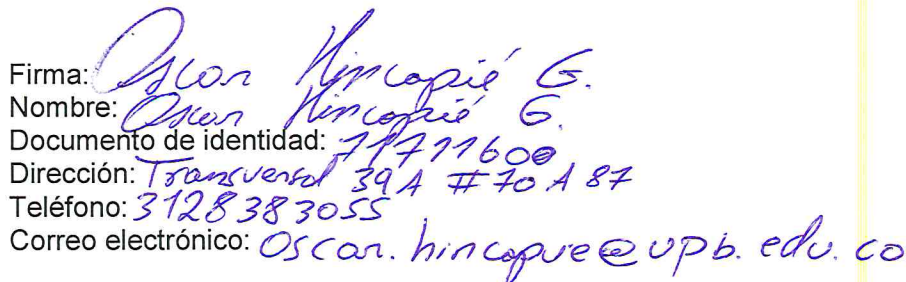 Firma: Oscar Hincapié G.
Nombre: Oscar Hincapié G.
Documento de identidad: 71711600
Dirección: Transversal 39A #70 A 87
Teléfono: 3128383055
Correo electrónico: Oscar.hincapie@upb.edu.co